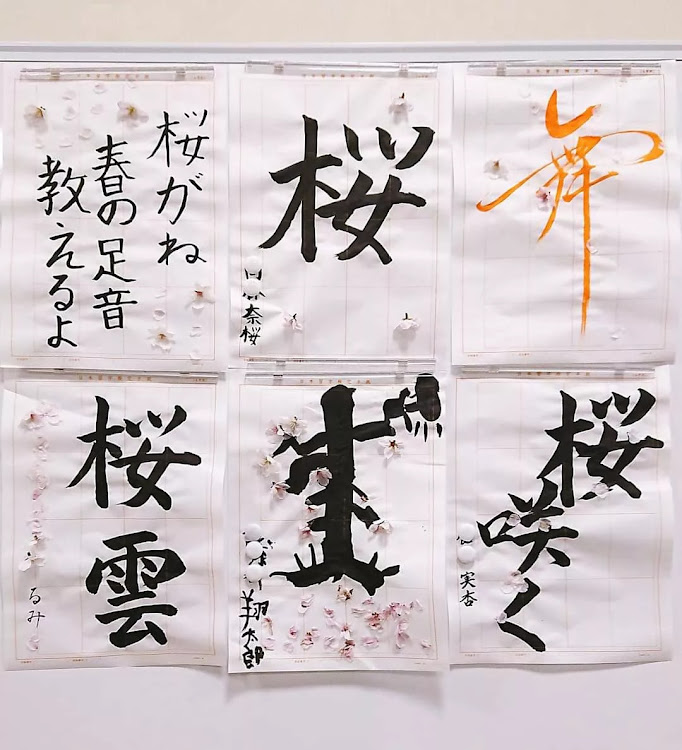 桜がね
春の足音
教えるよ
桜
奈桜
舞
桜雲
るみ
翔太郎
桜
咲く
実杏